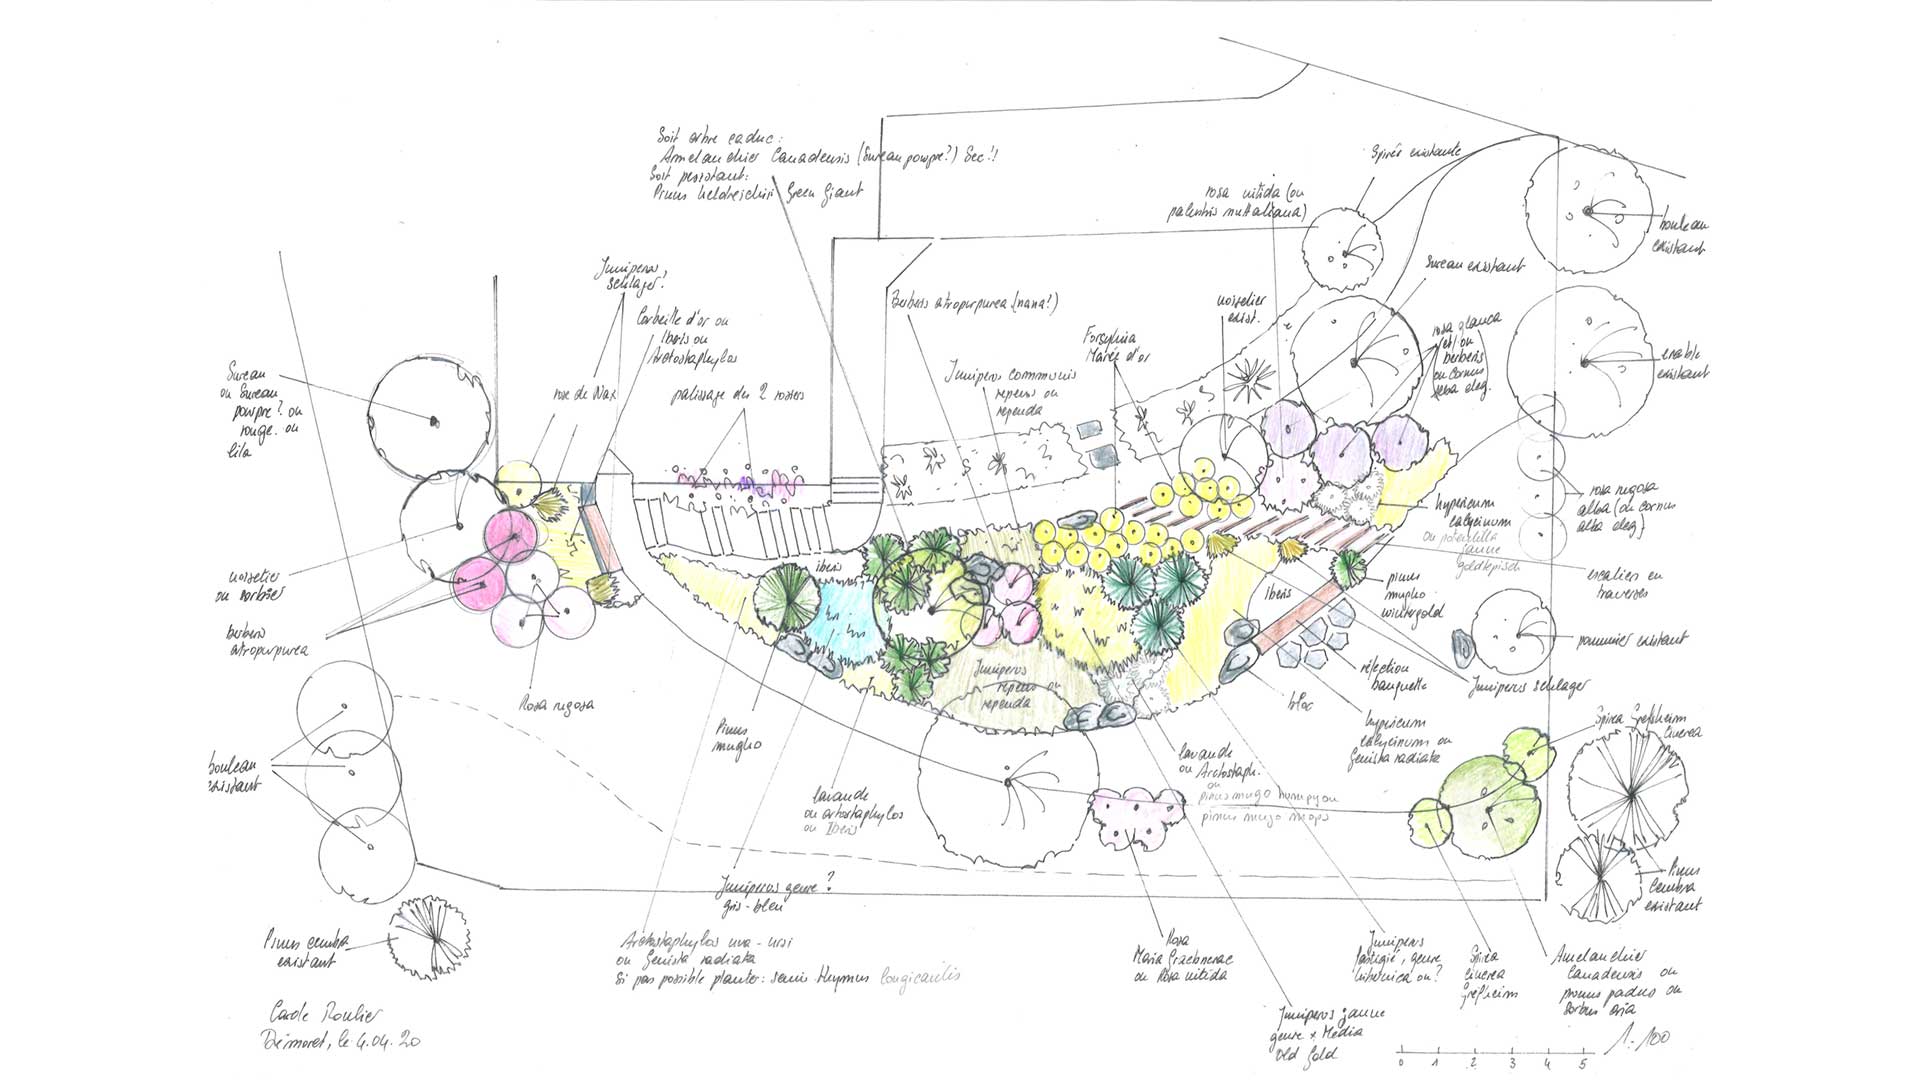 Soit arbre caduc:
Amelanchier Canadensis (Sureau pourpre?) Sec!!
Soit persistant:
Pinus heldreichii Green Giant
Spirée existante
rosa nitida (ou
palustris nuttaliana)
bouleau
existant
Sureau existant
Juniperus
schlager!
Corbeille d'or ou
Iberis ou
Arctostaphylos
Berberis atropurpurea (nana?)
noisetier
exist.
rosa glauca
et/ou
berberis
ou Cornus
alba eleg.
Forsythia
Marée d'or
érable
existant
Juniperus communis
repens ou
repanda
Sureau
ou Sureau
pourpre? ou
rouge. ou
lila
rose de Nax
palissage des 2 rosiers
rosa rugosa
alba (ou cornus
alba eleg)
hypericum
calycinum
ou potentilla
jaune
goldteppisch
noisetier
ou sorbier
iberis
Iberis
pinus
mugho
wintergold
escalier en
traverses
berberis
atropurpurea
pommier existant
Juniperus
repens ou
repanda
réfection
banquette
Juniperus schlager
Rosa rugosa
bloc
Pinus
mugho
hypericum
calycinum ou
Genista radiata
Spirea Grefsheim
cinerea
bouleau
existant
lavande
ou Arctostaph.
ou
pinus mugo humpy ou
pinus mugo mops
lavande
ou arctostaphylos
ou Iberis
Juniperus genre?
gris-bleu
Pinus
Cembra
existant
Pinus cembra
existant
Arctostaphylos uva-ursi
ou Genista radiata
Si pas possible planter: semis thymus longicaulis
Rosa
Maria Graebnerae
ou Rosa nitida
Juniperus
fastigié, genre
hibernica ou?
Spirea
cinerea
grefsheim
Amelanchier
Canadensis ou
prunus padus ou
Sorbus aria
Juniperus jaune
genre x Media
Old Gold
Carole Roulier
Bémont, le 4.04.20
1:100
0 1 2 3 4 5